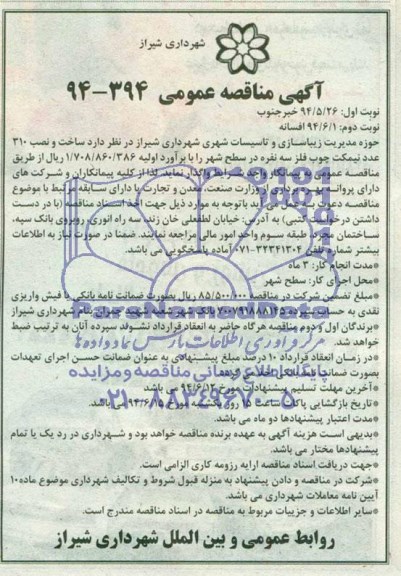 شهرداری شیراز
آگهی مناقصه عمومی ۳۹۴-۹۴
نوبت اول: ۹۴/۵/۲۶ خبرجنوب
نوبت دوم: ۹۴/۶/۱ افسانه
حوزه مدیریت زیباسازی و تاسیسات شهری شهرداری شیراز در نظر دارد ساخت و نصب ۳۱۰
عدد نیمکت چوب فلز سه نفره در سطح شهر را با برآورد اولیه ۱/۷۰۸/۸۶۰/۳۸۶ ریال از طریق
مناقصه عمومی به پیمانکار واجد شرایط واگذار نماید. لذا از کلیه پیمانکاران و شرکت های
دارای پروانه بهره برداری از وزارت صنعت، معدن و تجارت با دارای سابقه مرتبط با موضوع
مناقصه دعوت بعمل می آید باتوجه به موارد ذیل جهت اخذ اسناد مناقصه (با در دست
داشتن درخواست کتبی) به آدرس: خیابان لطفعلی خان زند، سه راه انوری، روبروی بانک سپه،
ساختمان مجرد، طبقه سوم واحد امور مالی مراجعه نمایند. ضمنا در صورت نیاز به اطلاعات
بیشتر شماره تلفن ۳۲۳۴۱۳۰۴-۰۷۱ آماده پاسخگویی می باشد.
*مدت انجام کار: ۳ ماه
*محل اجرای کار: سطح شهر
*مبلغ تضمین شرکت در مناقصه ۸۵/۵۰۰/۰۰۰ ریال بصورت ضمانت نامه بانکی یا فیش واریزی
نقدی به حساب بانک شهر شعبه شهید چمران بنام شهرداری شیراز
*برندگان اول و دوم مناقصه هرگاه حاضر به انعقاد قرارداد نشوند سپرده آنان به ترتیب ضبط
خواهد شد.
*در زمان انعقاد قرارداد ۱۰ درصد مبلغ پیشنهادی به عنوان ضمانت حسن اجرای تعهدات
بصورت ضمانت نامه بانکی
*آخرین مهلت تسلیم پیشنهادات مورخ ۹۴/۶/۱۴ می باشد
*تاریخ بازگشایی پاکات ساعت ۱۵ روز یکشنبه مورخ ۹۴/۶/۱۵ می باشد.
*مدت اعتبار پیشنهادها دو ماه می باشد.
*بدیهی است هزینه آگهی به عهده برنده مناقصه خواهد بود و شهرداری در رد یک یا تمام
پیشنهادها مختار می باشد.
*جهت دریافت اسناد مناقصه ارایه رزومه کاری الزامی است.
*شرکت در مناقصه و دادن پیشنهاد به منزله قبول شروط و تکالیف شهرداری موضوع ماده ۱۰
آیین نامه معاملات شهرداری می باشد.
*سایر اطلاعات و جزییات مربوط به مناقصه در اسناد مناقصه مندرج است.
روابط عمومی و بین الملل شهرداری شیراز
مرکز فرآوری اطلاعات پارس نماد داده ها
پایگاه اطلاع رسانی مناقصه ومزایده
۰۲۱-۸۸۳۴۹۶۷۰-۵